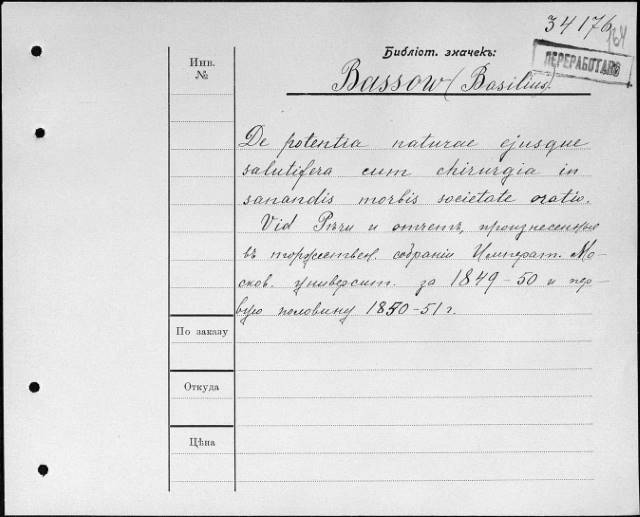 34176
164
ПЕРЕРАБОТАНО
Библіот. значекъ:
Инв.
№
Bassow (Basilius).
De potentia naturae ejusque
salutifera cum chirurgia in
sanandis morbis societate oratio.
Vid Рѣчи и отчетъ, произнесенныя
въ торжествен. собраніи Императ. Мо-
сков. университ. за 1849-50 и пер-
вую половину 1850-51 г.
По заказу
Откуда
Цѣна